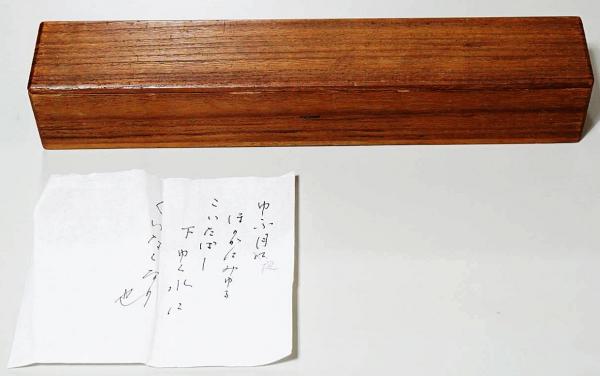 ゆふ月
ほのかにみゆる
こいたばし
下ゆく水に
くいなくなり
也